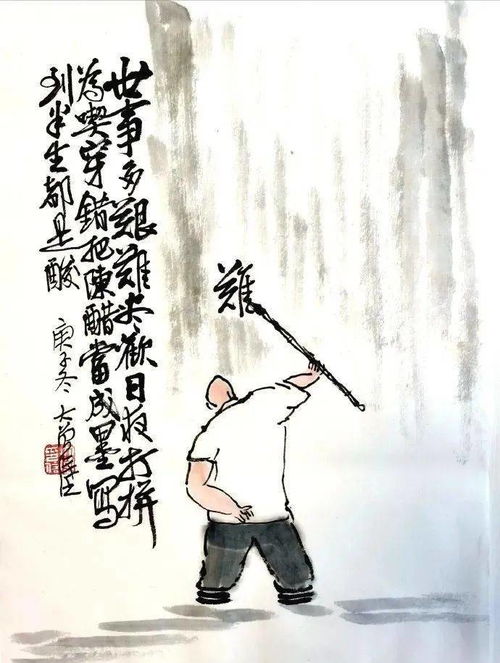 世事多艱難歡日夜打拼
為喫穿錯把陳醋當成墨寫
到半生都是酸
庚子冬 大
難